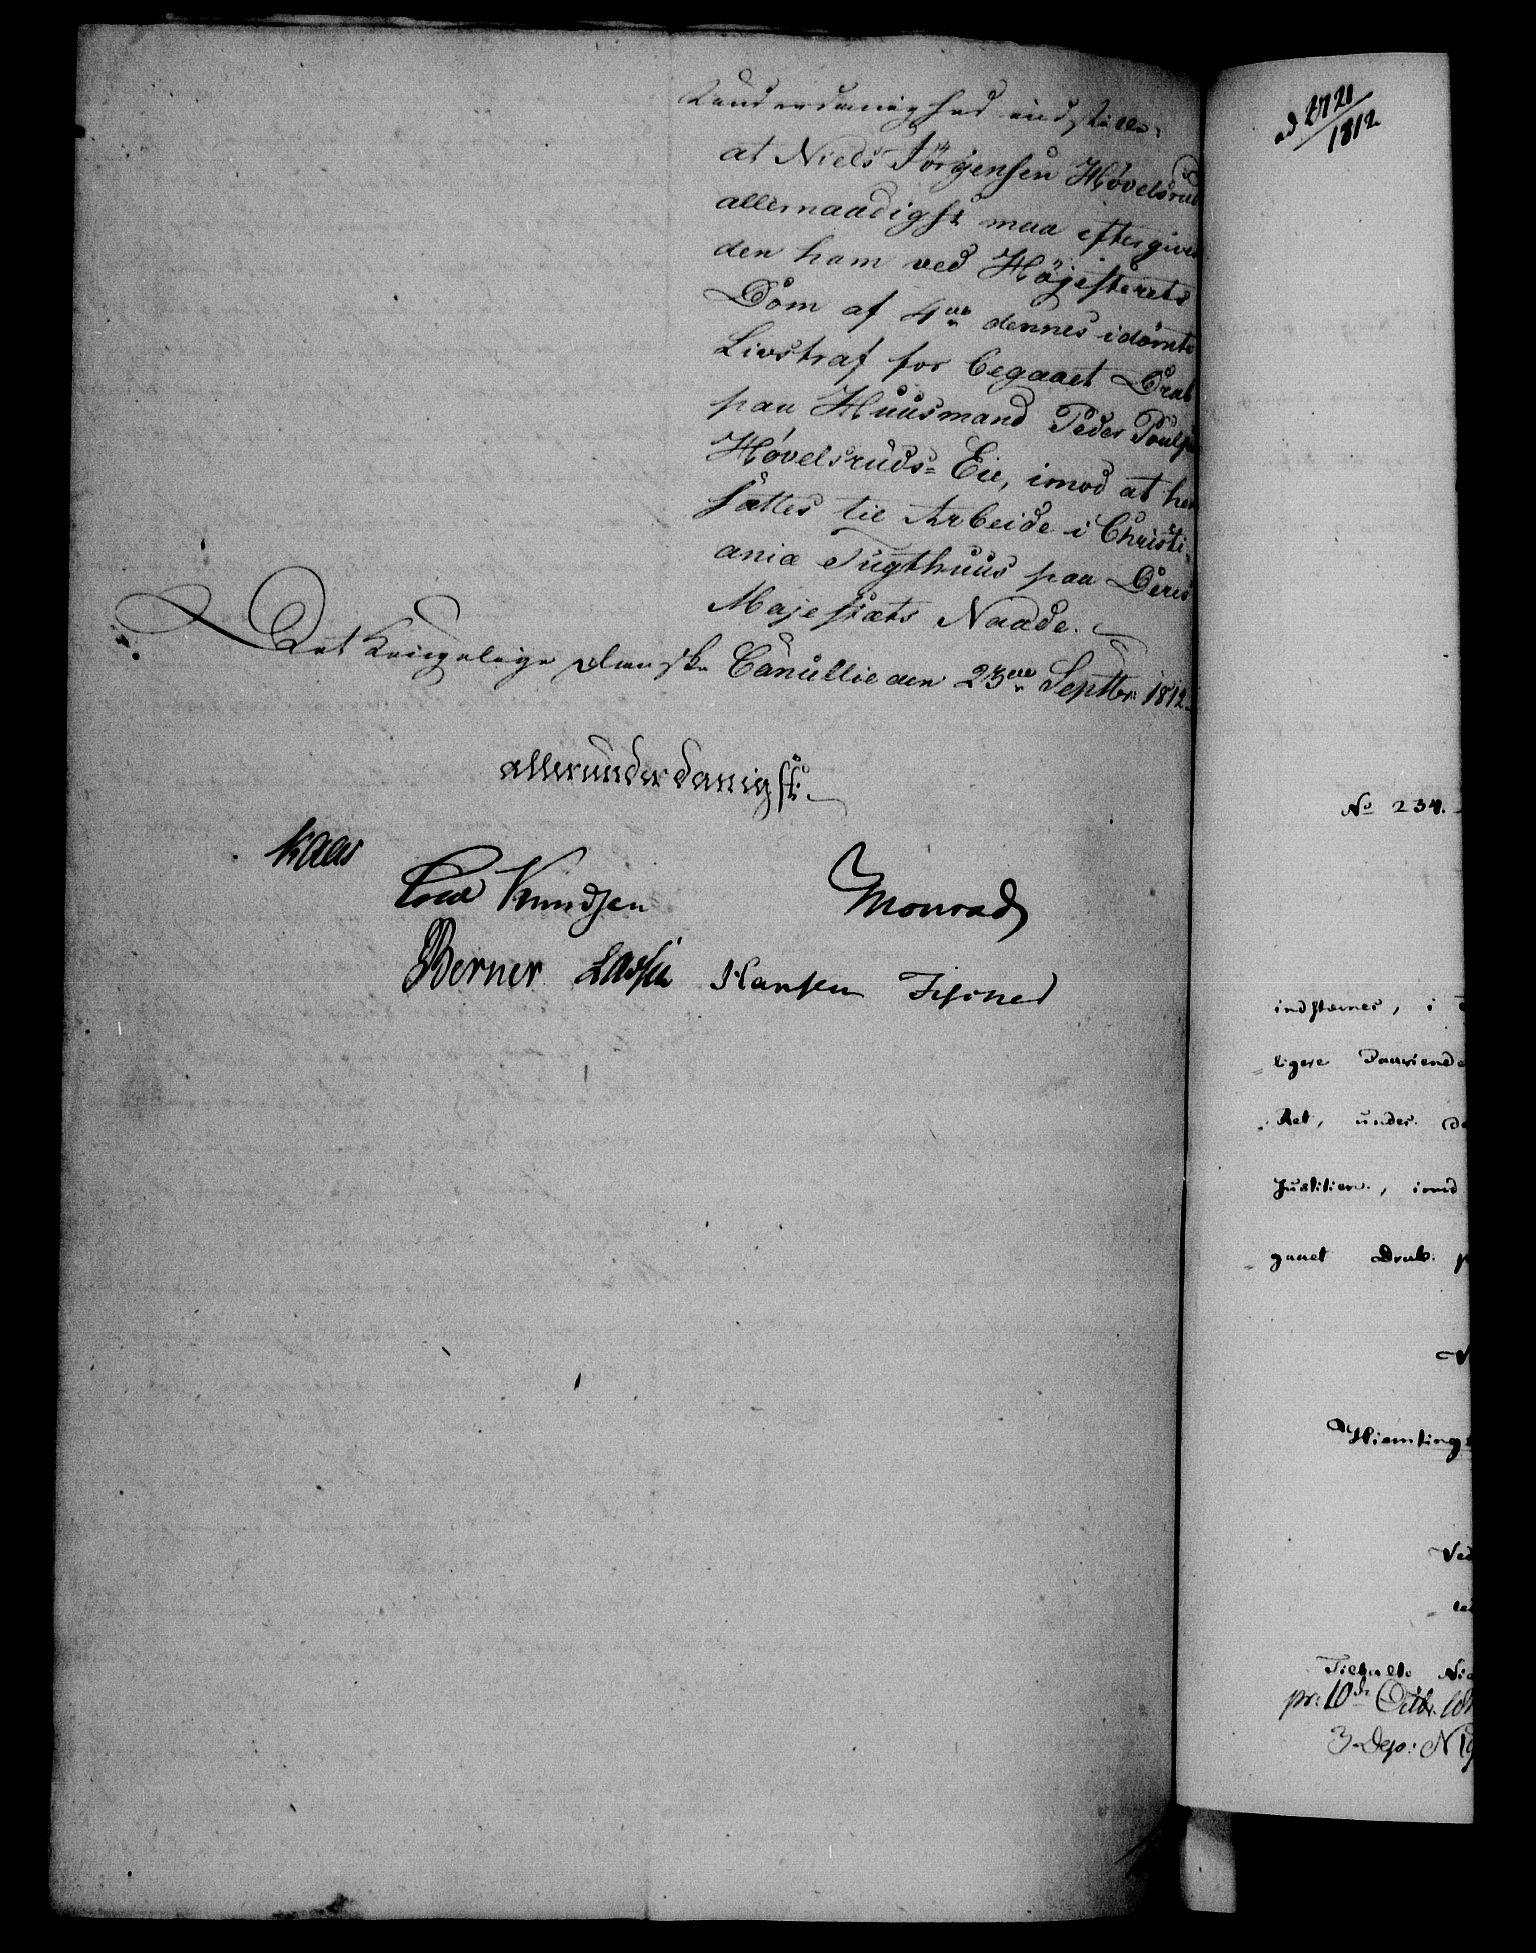 Underdanighed indstille:
at Niels Jörgensen Hövelsrud
allernaadigst maa eftergives
den ham ved Höjesterets
Dom af 4de dennes idömte
Livstraf for begaaet Drab
paa Huusmand Peder Pouls
Hövelsruds= Eie, imod at hen
sættes til Arbeide i Christi-
ania Tugthuus paa Deres
Majestæts Naade.
Det Kongelige danske Cancellie den 23de Septbr. 1812.
allerunderdanigst.
Kaas
Cold Knudsen Monrad
Berner Lassen Hansen
2721/1812
No 234.
indstævnes, i
ligere Paaviende
Ret, under
Justitien, imod
gaaet Drab.
Hiemtings
Ved
pr: 10de Octbr. 181
3 Dep: N 19